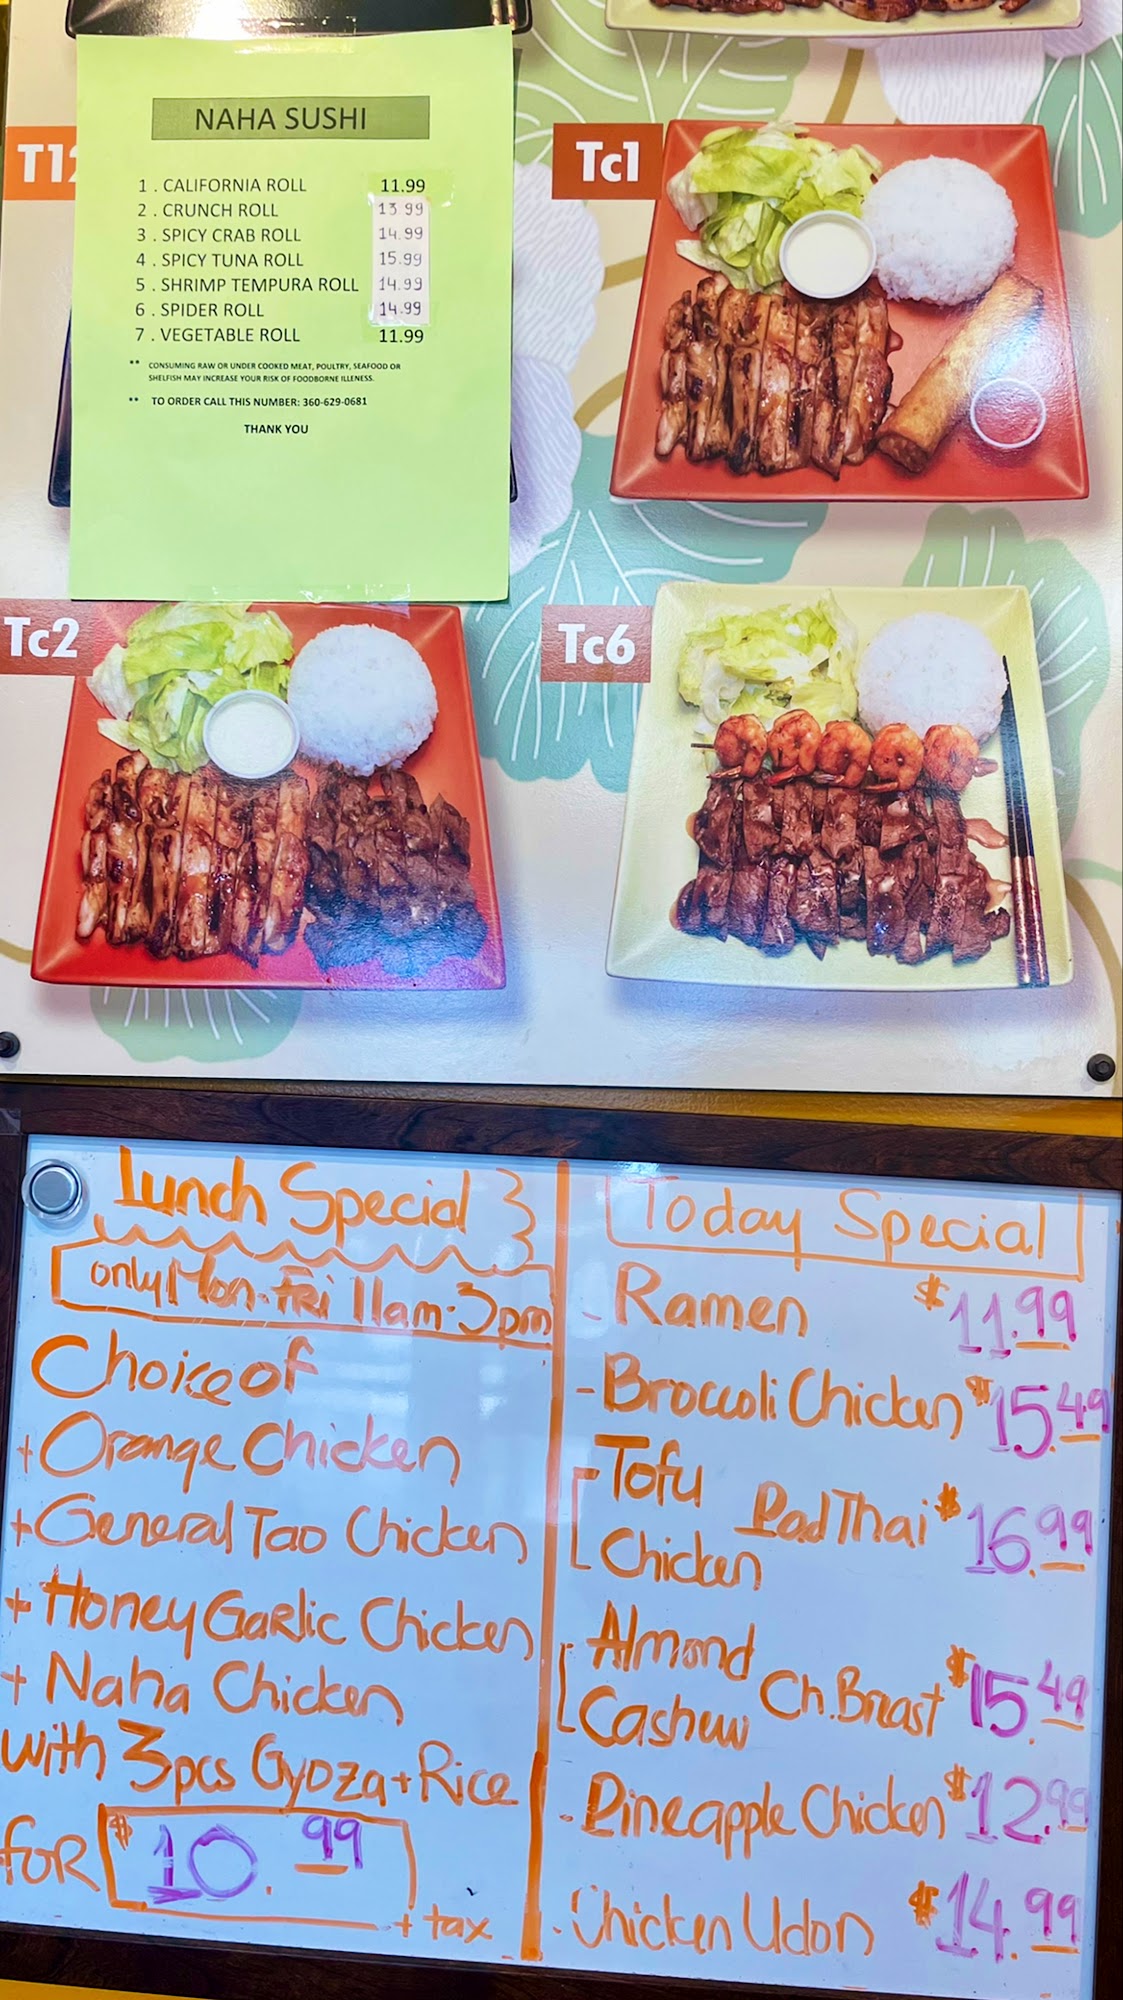 NAHA SUSHI
1 . CALIFORNIA ROLL 11.99
2 . CRUNCH ROLL 13.99
3 . SPICY CRAB ROLL 14.99
4 . SPICY TUNA ROLL 15.99
5 . SHRIMP TEMPURA ROLL 14.99
6 . SPIDER ROLL 14.99
7 . VEGETABLE ROLL 11.99
** CONSUMING RAW OR UNDER COOKED MEAT, POULTRY, SEAFOOD OR
SHELFISH MAY INCREASE YOUR RISK OF FOODBORNE ILLENESS.
** TO ORDER CALL THIS NUMBER: 360-629-0681
THANK YOU
Tc1
Tc2
Tc6
Lunch Special
only Mon-Fri 11am-3pm
Choice of
+ Orange Chicken
+ General Tao Chicken
+ Honey Garlic Chicken
+ Naha Chicken
with 3pcs Gyoza + Rice
for $10.99
+ tax
Today Special
- Ramen $11.99
- Broccoli Chicken $15.49
- Tofu
Chicken Pad Thai $16.99
Almond
Cashew Ch. Breast $15.49
- Pineapple Chicken $12.99
- Chicken Udon $14.99